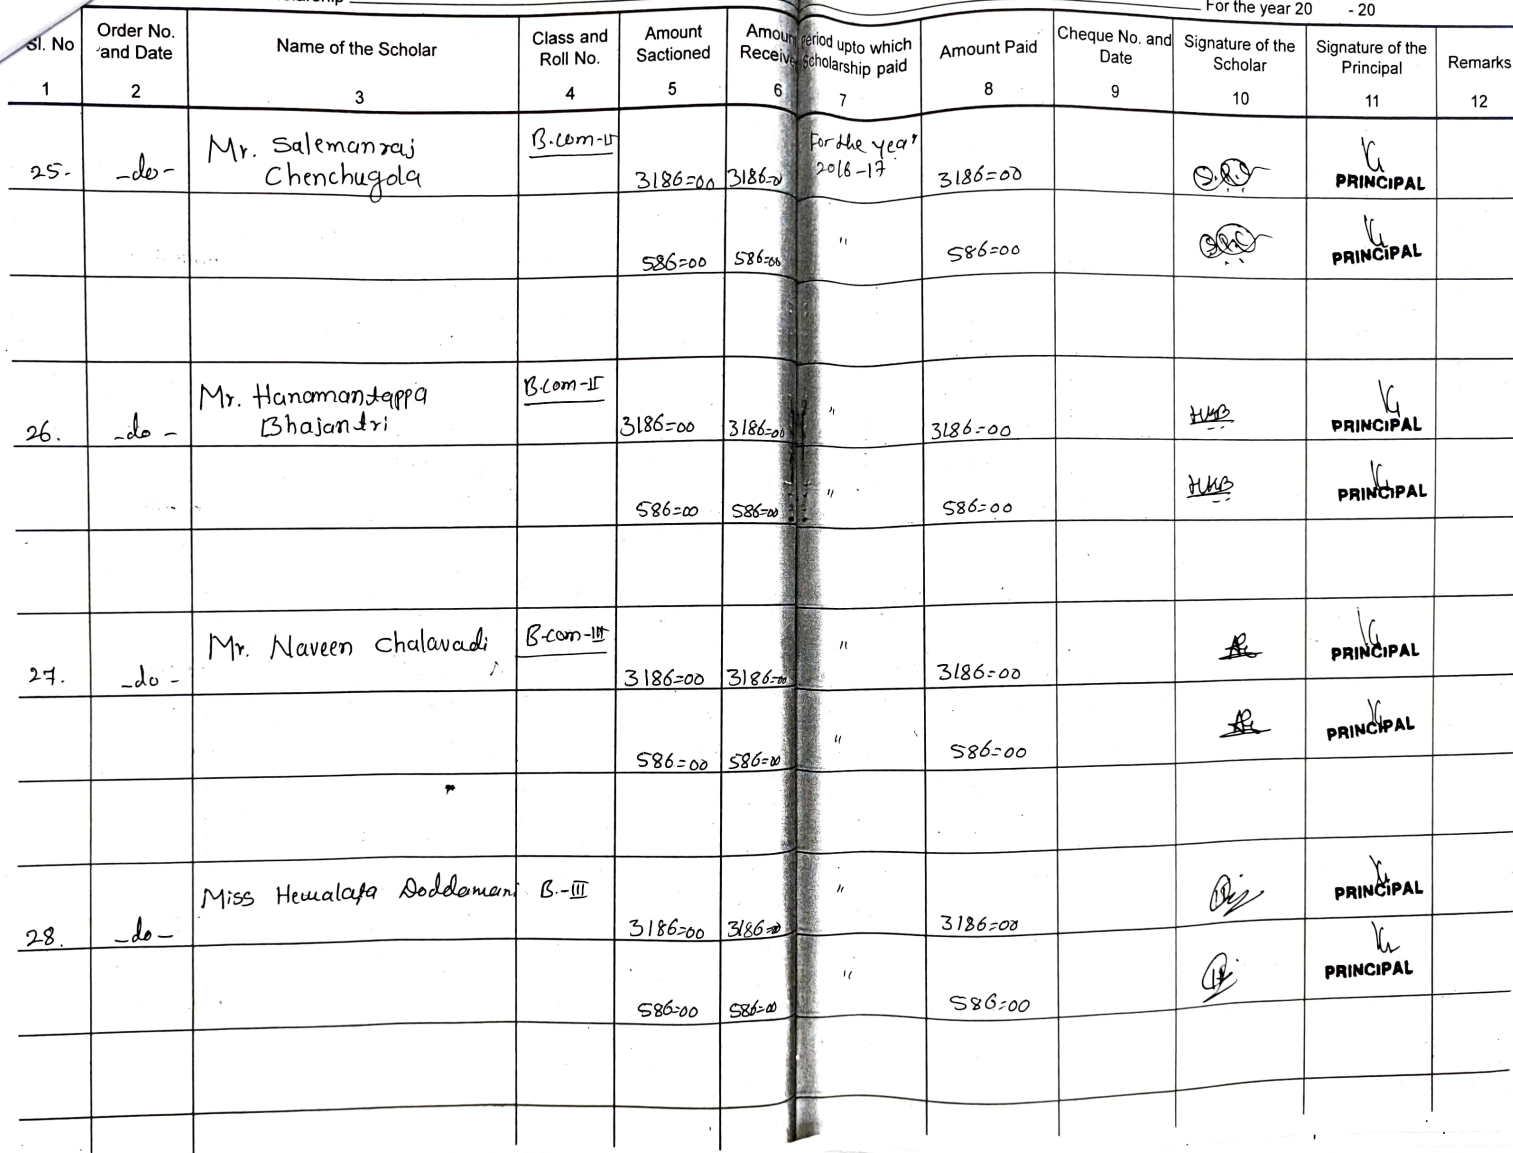 For the year 20 - 20
Sl. No
Order No. and Date
Name of the Scholar
Class and Roll No.
Amount Sactioned
Amoun Receive
Period upto which Scholarship paid
Amount Paid
Cheque No. and Date
Signature of the Scholar
Signature of the Principal
Remarks
1 2 3 4 5 6 7 8 9 10 11 12
Mr. Salemanraj B.com-II For the year
25. -do- Chenchugola 3186=00 3186=0 2016-17 3186=00 PRINCIPAL
586=00 586=00 " 586=00 PRINCIPAL
Mr. Hanamantappa B.com-II
26. -do- Bhajantri 3186=00 3186=00 " 3186=00 HKB PRINCIPAL
586=00 586=00 " 586=00 HKB PRINCIPAL
Mr. Naveen Chalavadi B-com-III
27. -do- 3186=00 3186=00 " 3186=00 PRINCIPAL
586=00 586=00 " 586=00 PRINCIPAL
Miss Hemalata Doddamani B.-III
28. -do- 3186=00 3186=00 " 3186=00 PRINCIPAL
586=00 586=00 " 586=00 PRINCIPAL